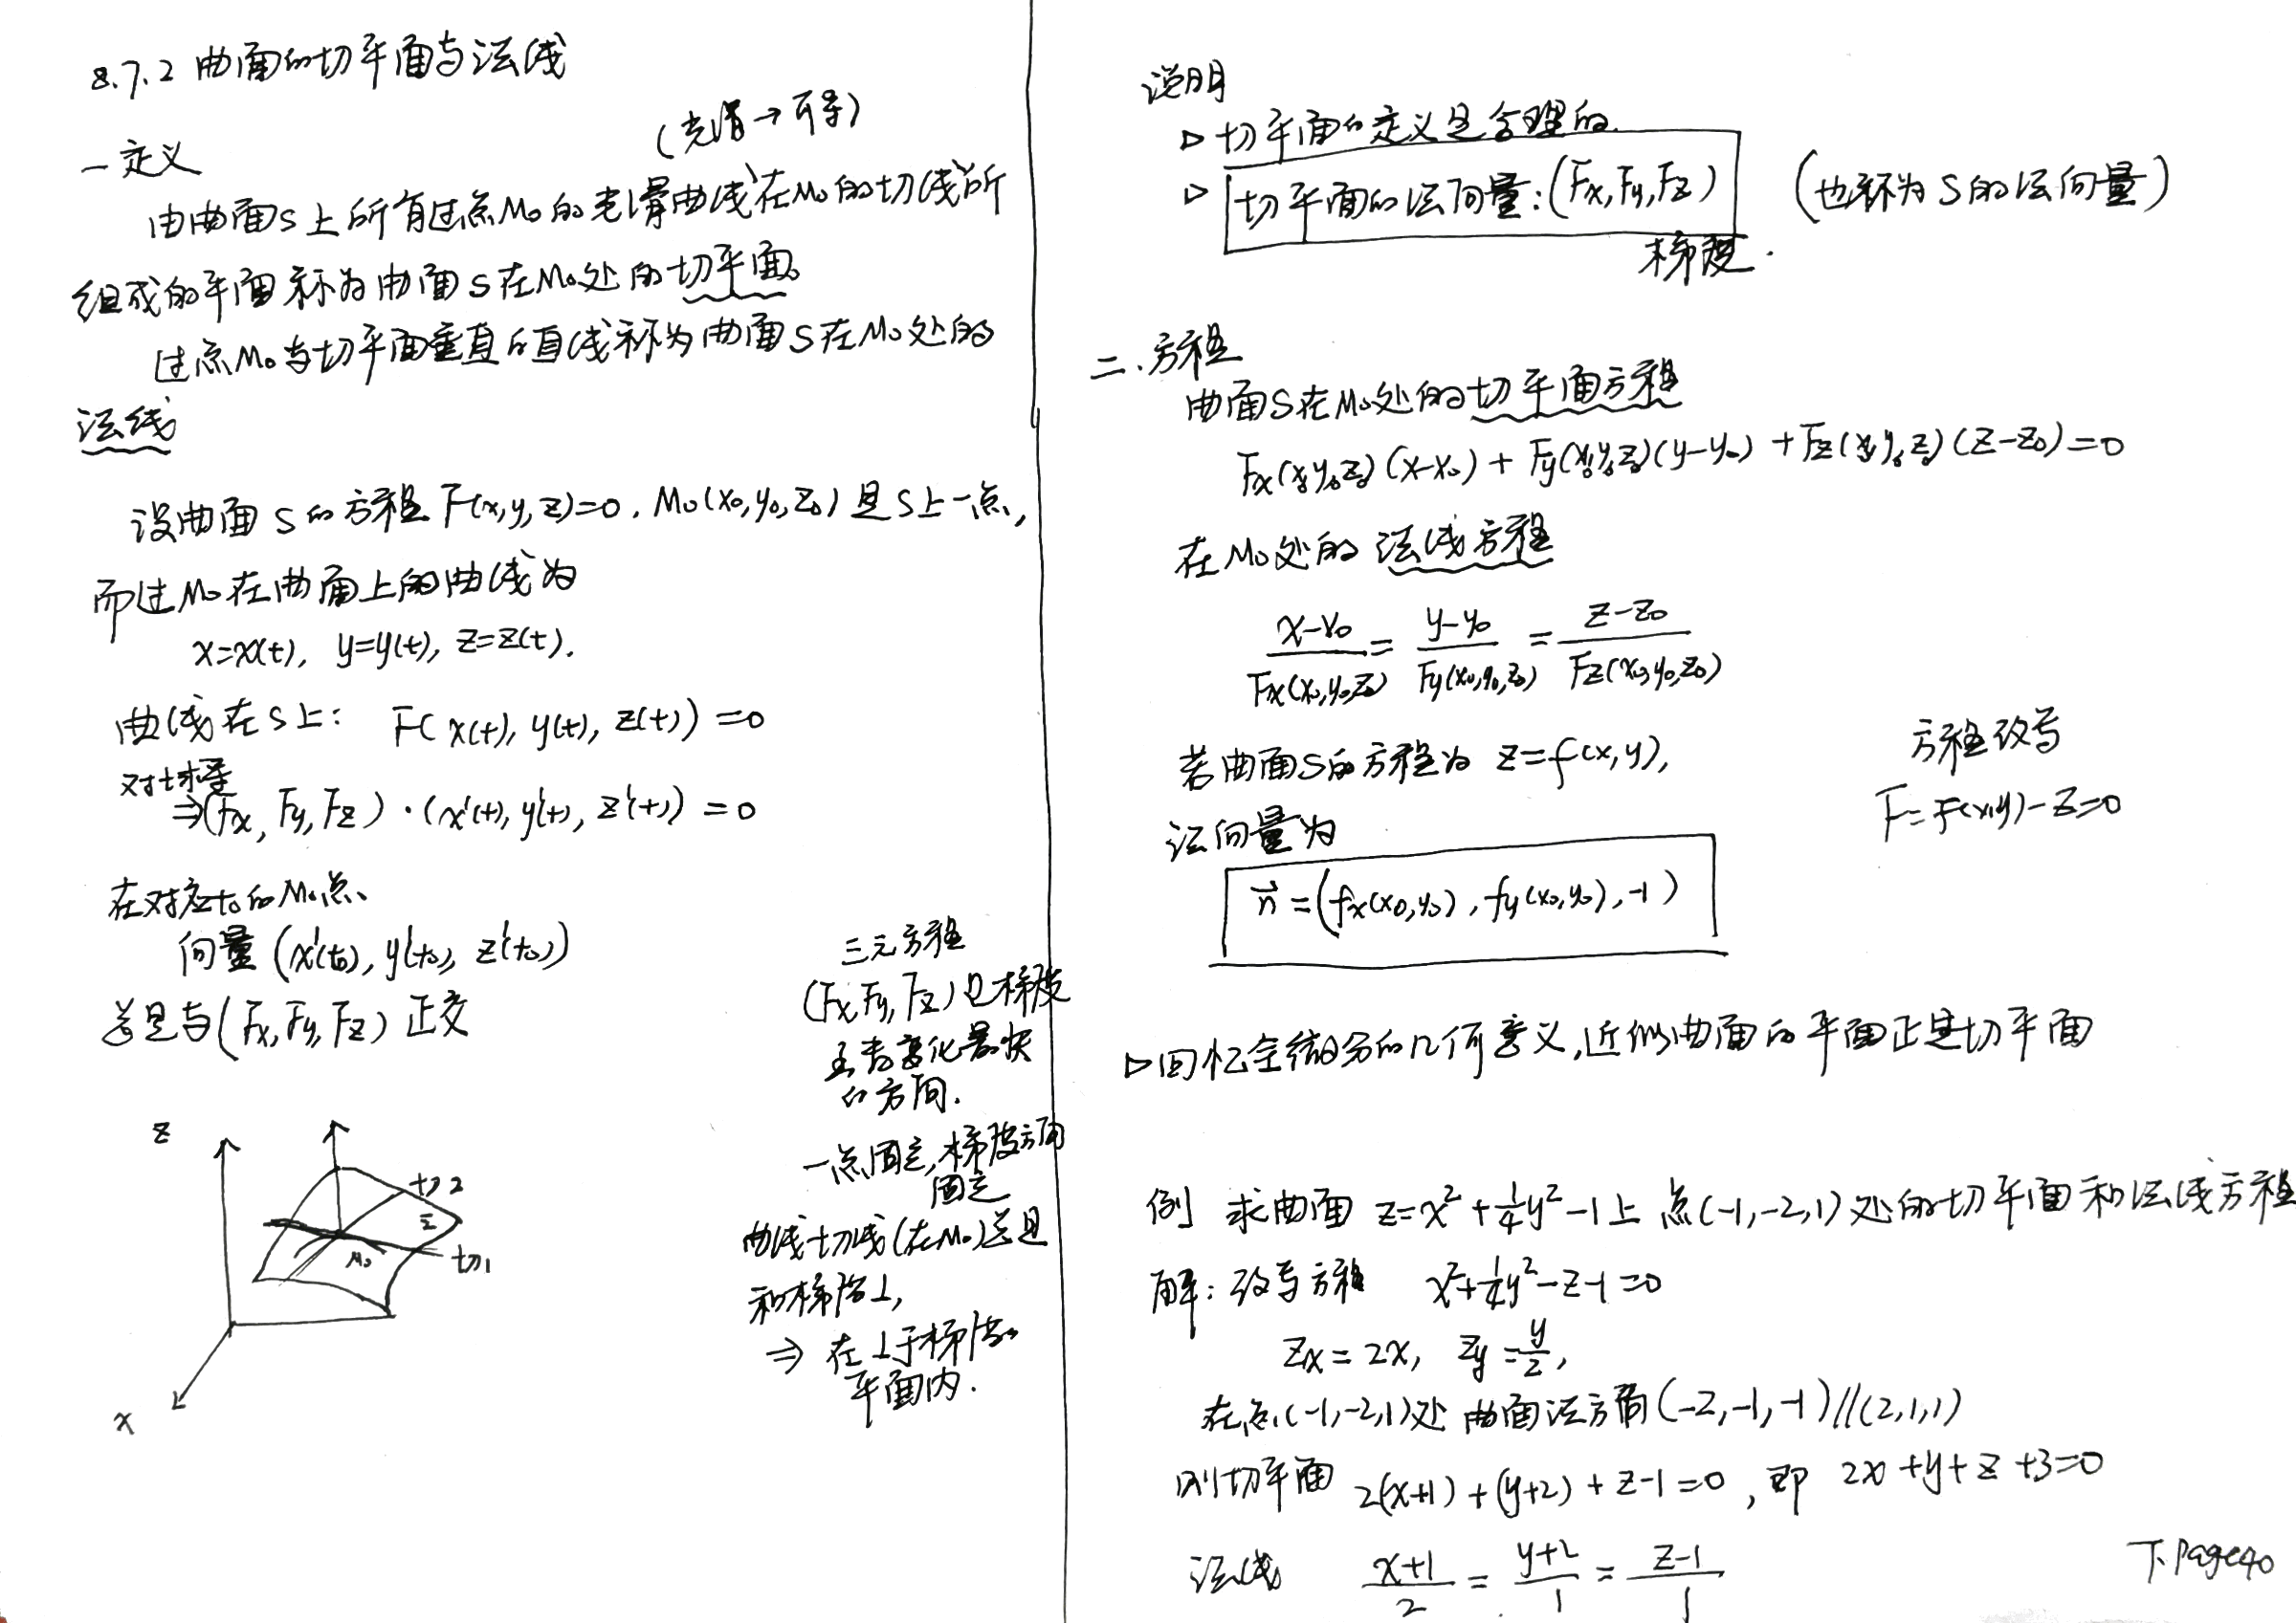 8.7.2 曲面的切平面与法线
(光滑→可导)
一 定义
由曲面S上所有过点M₀的光滑曲线在M₀的切线所
组成的平面称为曲面S在M₀处的切平面。
过点M₀与切平面垂直的直线称为曲面S在M₀处的
法线
设曲面S的方程F(x,y,z)=0. M₀(x₀,y₀,z₀)是S上一点,
而过M₀在曲面上的曲线为
x=x(t), y=y(t), z=z(t).
曲线在S上: F(x(t), y(t), z(t))=0
对t求导
⇒(Fx, Fy, Fz)·(x'(t), y'(t), z'(t))=0
在对应t₀的M₀点、
向量(x'(t₀), y'(t₀), z'(t₀))
总是与(Fx, Fy, Fz)正交
z
切2
Σ
M₀
切1
x
三元方程
(Fx, Fy, Fz)是梯度
变化最快
的方向.
一点固定,梯度方向
固定
曲线切线(在M₀)总是
和梯度⊥,
⇒ 在⊥于梯度的
平面内.
说明
▷ 切平面的定义是合理的.
▷ 切平面的法向量:(Fx, Fy, Fz) (也称为S的法向量)
梯度.
二.方程
曲面S在M₀处的切平面方程
Fx(x₀,y₀,z₀)(x-x₀)+Fy(x₀,y₀,z₀)(y-y₀)+Fz(x₀,y₀,z₀)(z-z₀)=0
在M₀处的法线方程
(x-x₀)/Fx(x₀,y₀,z₀) = (y-y₀)/Fy(x₀,y₀,z₀) = (z-z₀)/Fz(x₀,y₀,z₀)
若曲面S的方程为 z=f(x,y), 方程改写
F=f(x,y)-z=0
法向量为
n⃗=(fx(x₀,y₀), fy(x₀,y₀), -1)
▷回忆全微分的几何意义,近似曲面的平面正是切平面
例 求曲面 z=x²+¼y²-1上 点(-1,-2,1)处的切平面和法线方程
解: 改写方程 x²+¼y²-z-1=0
zx=2x, zy=y/2,
在点(-1,-2,1)处 曲面法方向(-2,-1,-1)//(2,1,1)
则切平面 2(x+1)+(y+2)+z-1=0, 即 2x+y+z+3=0
法线 (x+1)/2 = (y+2)/1 = (z-1)/1
下.Page40